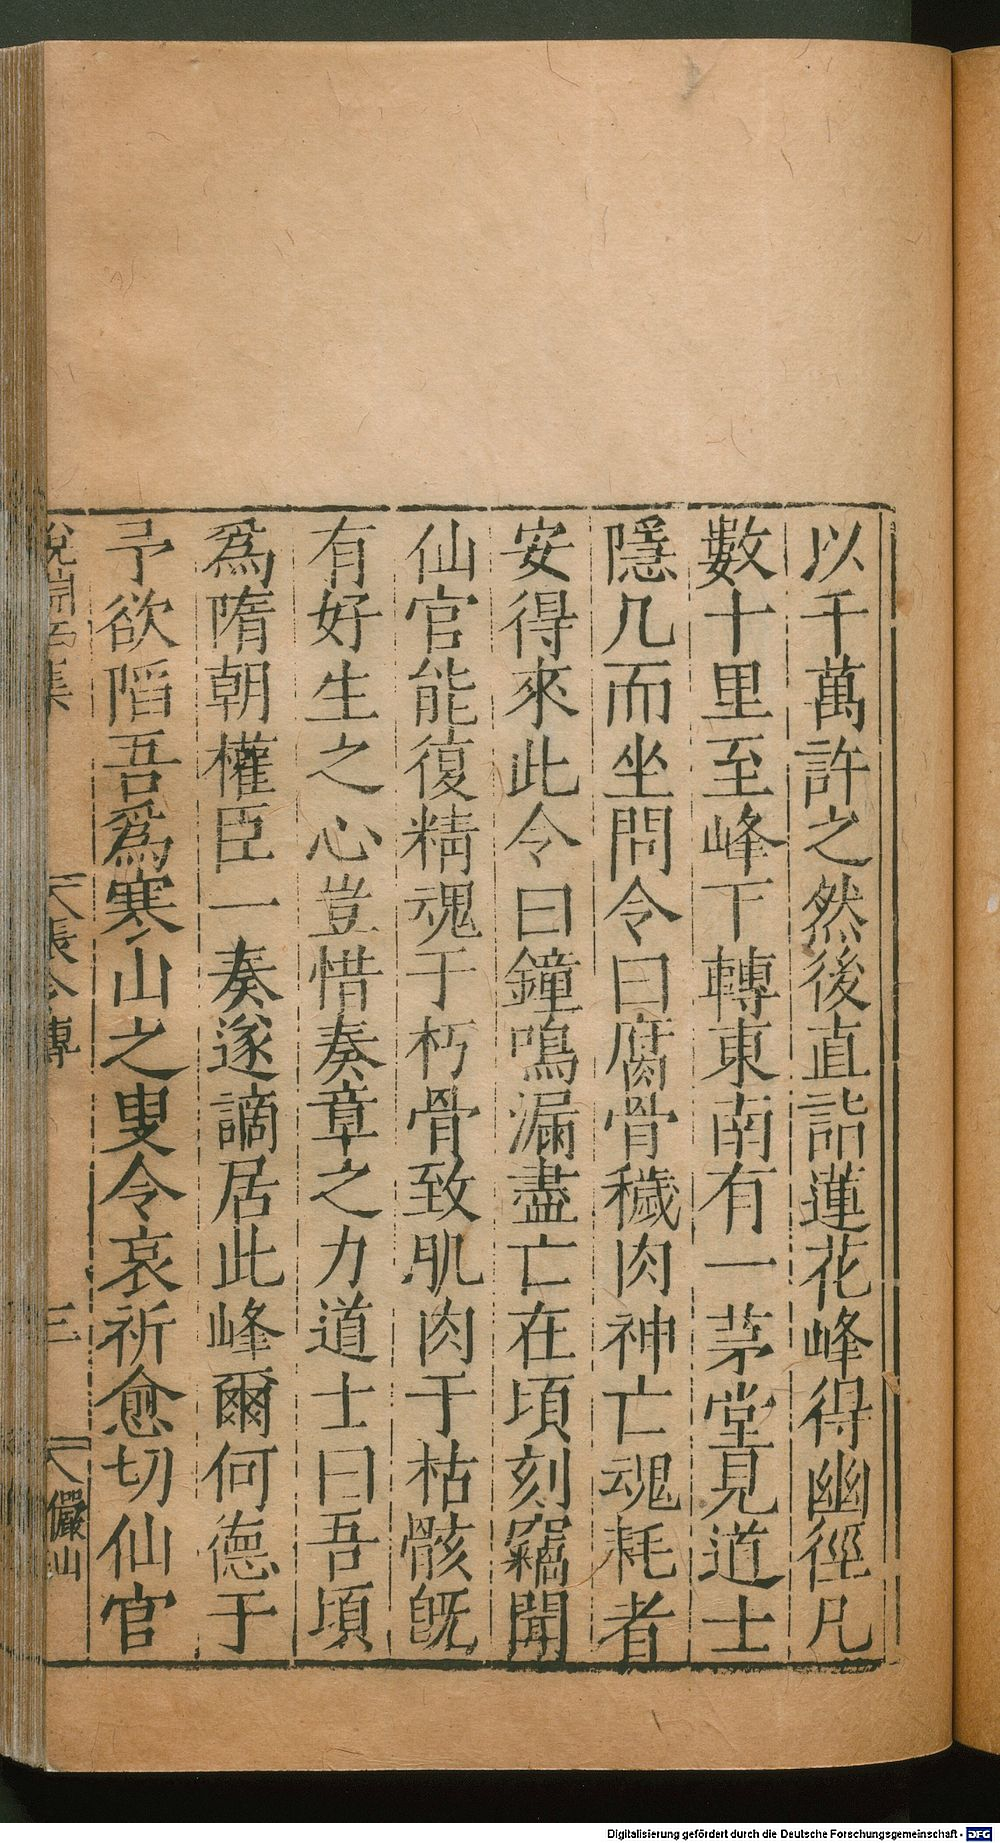 以千萬許之然後直詣蓮花峰得幽徑凡
數十里至峰下轉東南有一茅堂見道士
隱几而坐問令曰腐骨穢肉神亡魂耗者
安得來此令曰鐘鳴漏盡亡在頃刻竊聞
仙官能復精魂于朽骨致肌肉于枯骸旣
有好生之心豈惜奏章之力道士曰吾頃
爲隋朝權臣一奏遂謫居此峰爾何德于
予欲陷吾爲寒山之叟令哀祈愈切仙官
張令傳 三 儼山
Digitalisierung gefördert durch die Deutsche Forschungsgemeinschaft - DFG